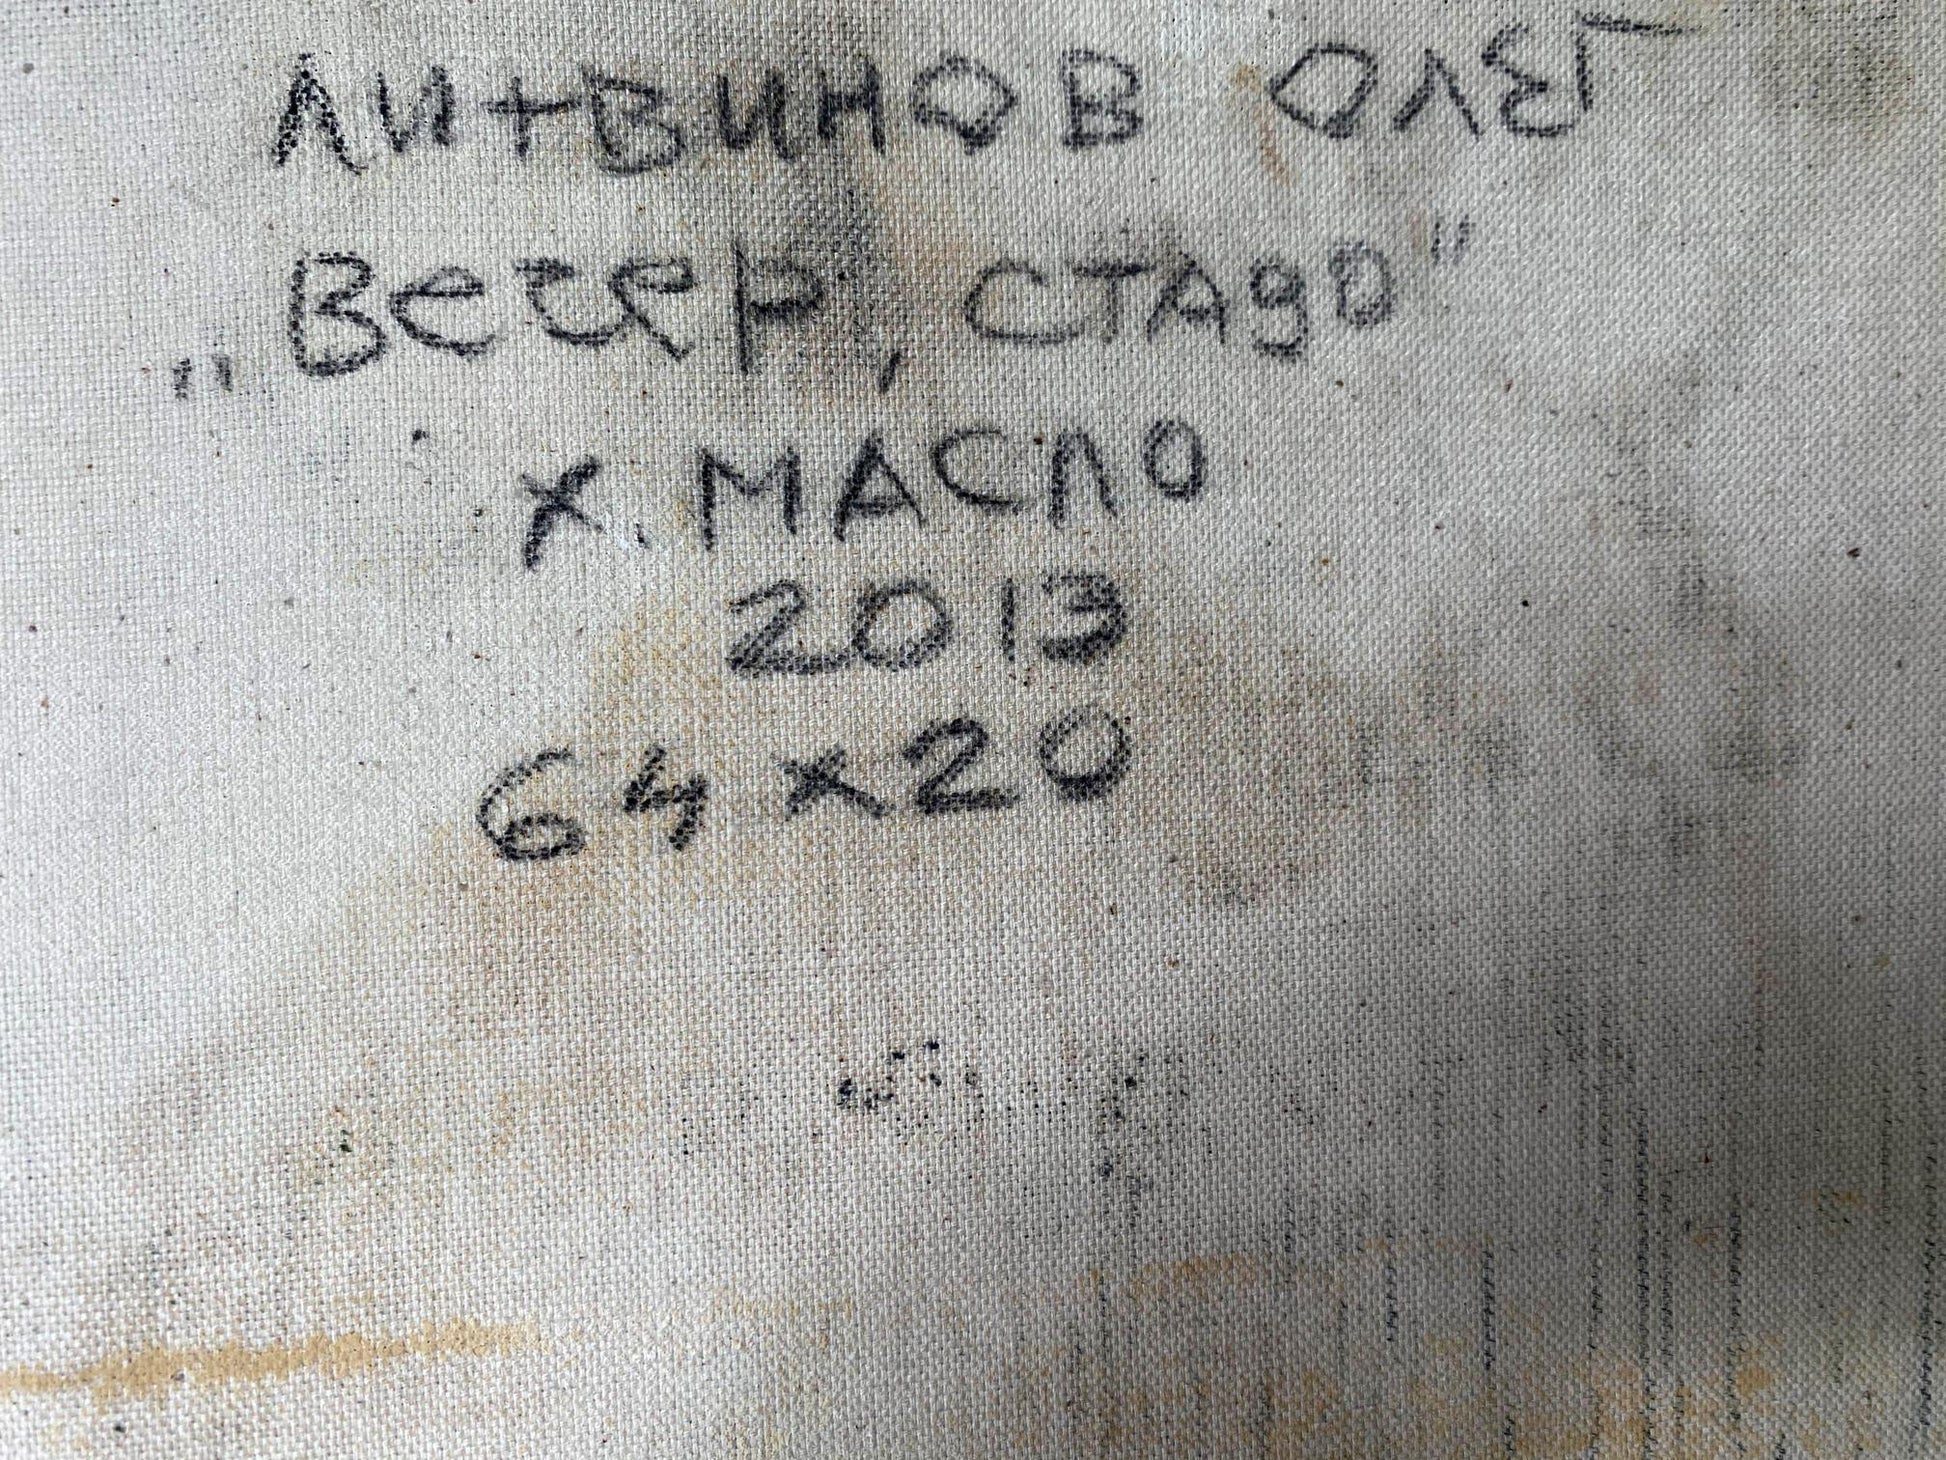 ЛИТВИНОВ ОЛЕГ
„Вечер, стадо"
х. МАСЛО
2013
64 х 20